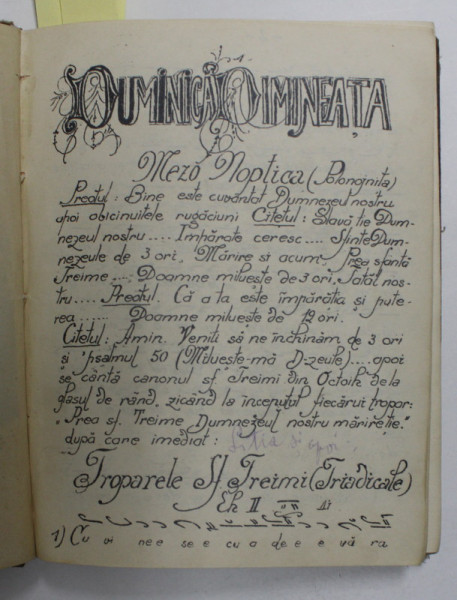 -1-
DUMINICĂ DIMINEAȚA
Mezo Noptica (Polonojnița)
Preotul: Bine este cuvântat Dumnezeul nostru
apoi obicinuitele rugăciuni Citețul: Slavă ție Dum-
nezeul nostru .... Împărate ceresc .... Sfinte Dum-
nezeule de 3 ori. Mărire și acum Prea sfântă
Treime .... Doamne miluește de 3 ori. Tatăl nos-
tru.... Preotul. Că a ta este împărăția și pute-
rea ...... Doamne miluește de 12 ori.
Citețul: Amin. Veniți să ne închinăm de 3 ori
și psalmul 50 (Miluește-mă D-zeule)... apoi
se cântă canonul sf. Treimi din Octoih dela
glasul de rând, zicând la începutul fiecărui tropar:
"Prea sf. Treime Dumnezeul nostru mărire ție."
după care imediat: Litia și apoi:
Troparele Sf Treimi (Triadicale)
Eh II Di
1) Cu vi nee se e cu a de e e vă ra